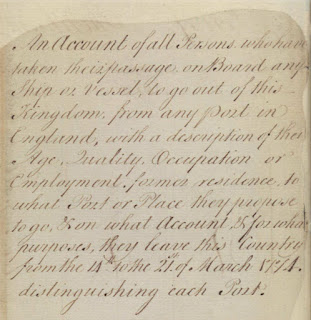 An Account of all Persons who have
taken their passage on Board any
Ship or Vessel, to go out of this
Kingdom, from any port in
England, with a description of their
Age, Quality, Occupation or
Employment, former residence, to
what Port or Place they propose
to go, & on what Account & for what
purposes, they leave this Country
from the 14th to the 21st of March 1774.
distinguishing each Port.